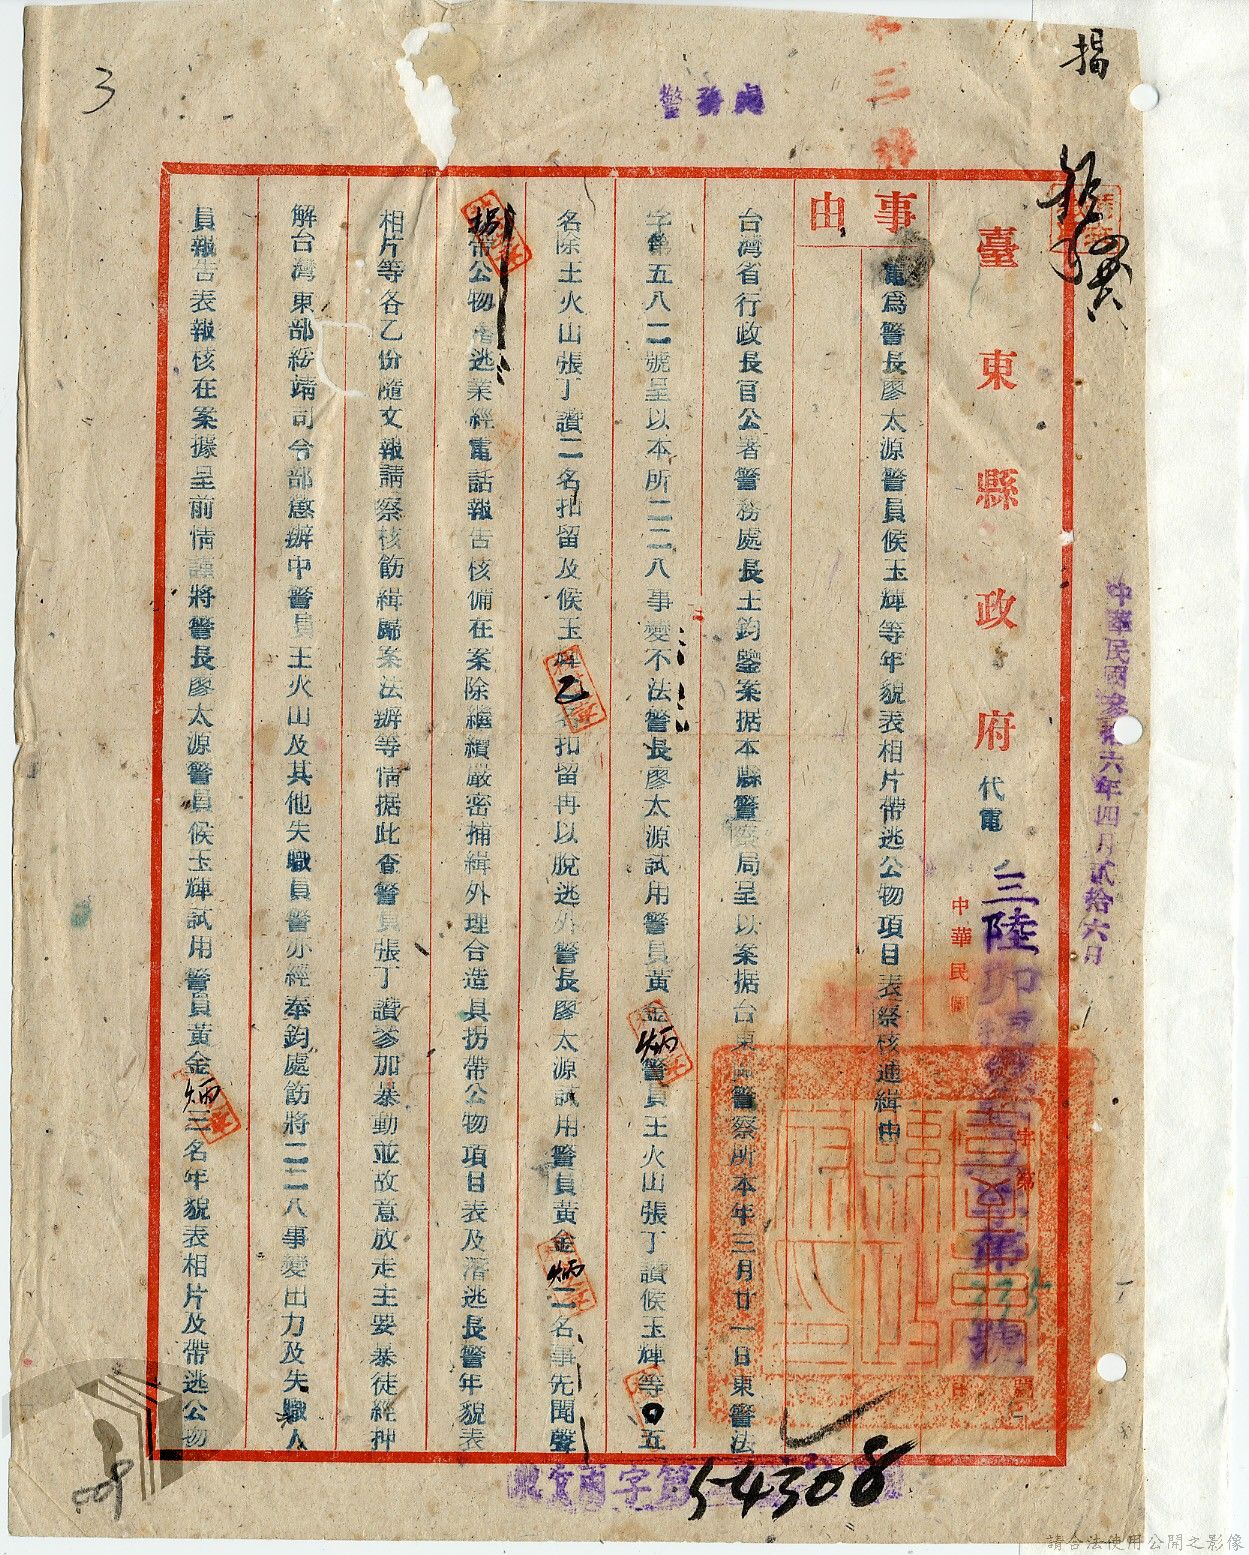 指
警務處
3
中華民國參拾六年四月貳拾六日
臺東縣政府代電
中華民國
三陸卯
字第
號
事由
電為警長廖太源警員侯玉輝等年貌表相片帶逃公物項目表祭核通緝由
台灣省行政長官公署警務處長王鈞鑒案据本縣警察局呈以案据台東警察所本年三月廿一日東警法
字第五八二號呈以本所二二八事變不法警長廖太源試用警員黃金炳警員王火山張丁讚侯玉輝等五
名除王火山張丁讚二名扣留及侯玉輝乙名扣留再以脫逃外警長廖太源試用警員黃金炳二名事先聞聲
捌帶公物潛逃業經電話報告核備在案除繼續嚴密捕緝外理合造具拐帶公物項目表及潛逃長警年貌表
相片等各乙份隨文報請察核飭緝歸案法辦等情据此查警員張丁讚參加暴動並故意放走主要暴徒經押
解台灣東部綏靖司令部懲辦中警員王火山及其他失職員警亦經奉鈞處飭將二二八事變出力及失職人
員報告表報核在案據呈前情謹將警長廖太源警員侯玉輝試用警員黃金炳三名年貌表相片及帶逃公物
收文 字第54308號
請合法使用公開之影像